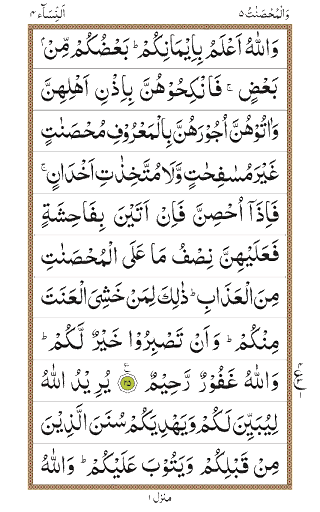 النِّسَآء ۴ وَالْمُحْصَنٰتُ ۵
وَاللّٰهُ اَعْلَمُ بِاِيْمَانِكُمْ ؕ بَعْضُكُمْ مِّنْۢ
بَعْضٍ ۚ فَانْكِحُوْهُنَّ بِاِذْنِ اَهْلِهِنَّ
وَاٰتُوْهُنَّ اُجُوْرَهُنَّ بِالْمَعْرُوْفِ مُحْصَنٰتٍ
غَيْرَ مُسٰفِحٰتٍ وَّلَا مُتَّخِذٰتِ اَخْدَانٍ ۚ
فَاِذَاۤ اُحْصِنَّ فَاِنْ اَتَيْنَ بِفَاحِشَةٍ
فَعَلَيْهِنَّ نِصْفُ مَا عَلَى الْمُحْصَنٰتِ
مِنَ الْعَذَابِ ؕ ذٰلِكَ لِمَنْ خَشِىَ الْعَنَتَ
مِنْكُمْ ؕ وَاَنْ تَصْبِرُوْا خَيْرٌ لَّكُمْ ؕ
وَاللّٰهُ غَفُوْرٌ رَّحِيْمٌ ۲۵ يُرِيْدُ اللّٰهُ
لِيُبَيِّنَ لَكُمْ وَيَهْدِيَكُمْ سُنَنَ الَّذِيْنَ
مِنْ قَبْلِكُمْ وَيَتُوْبَ عَلَيْكُمْ ؕ وَاللّٰهُ
منزل ۱